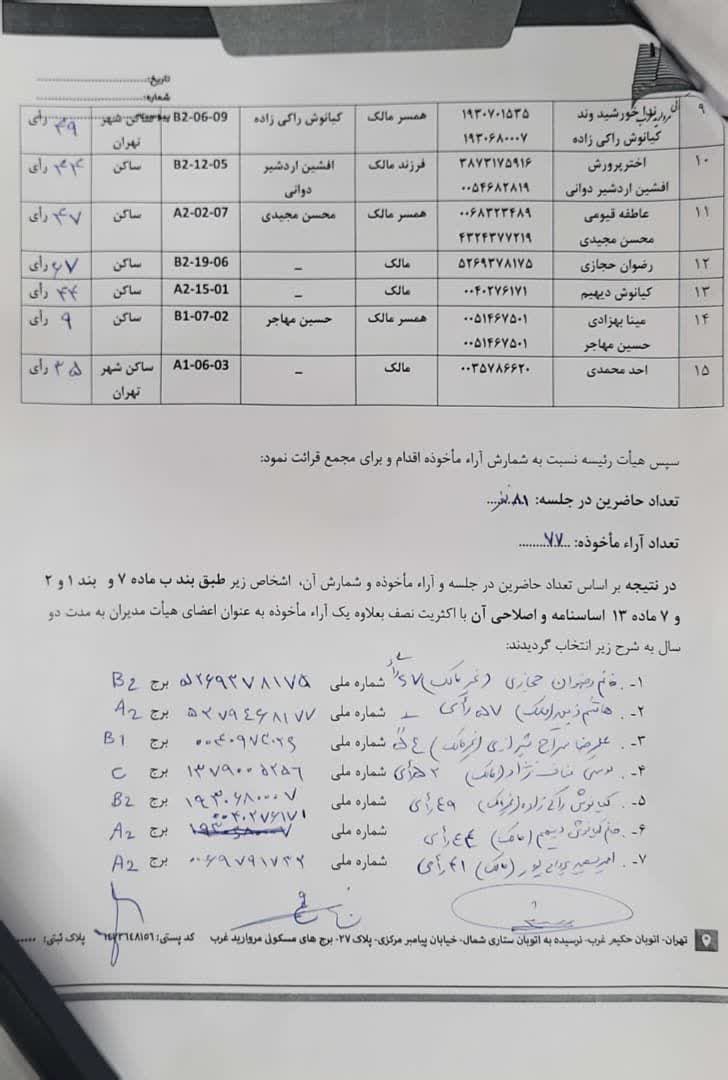 تاریخ:
شماره:
۹ ندا خورشید وند ۱۹۳۰۷۰۱۵۳۵ همسر مالک کیانوش راکی زاده B2-06-09 ساکن شهر ۴۹ رأی
کیانوش راکی زاده ۱۹۳۰۶۸۰۰۰۷ تهران
۱۰ اخترپرورش ۳۸۷۳۱۷۵۹۱۶ فرزند مالک افشین اردشیر B2-12-05 ساکن رأی
افشین اردشیر دوانی ۰۰۵۴۶۸۲۸۱۹ دوانی
۱۱ عاطفه قیومی ۰۰۶۸۳۲۳۴۸۹ همسر مالک محسن مجیدی A2-02-07 ساکن ۴۷ رأی
محسن مجیدی ۴۳۲۴۳۷۷۲۱۹
۱۲ رضوان حجازی ۵۲۶۹۳۷۸۱۷۵ مالک _ B2-19-06 ساکن ۶۷ رأی
۱۳ کیانوش دیهیم ۰۰۴۰۲۷۶۱۷۱ مالک _ A2-15-01 ساکن ۴۴ رأی
۱۴ مینا بهزادی ۰۰۵۱۴۶۷۵۰۱ همسر مالک حسین مهاجر B1-07-02 ساکن ۹ رأی
حسین مهاجر ۰۰۵۱۴۶۷۵۰۱
۱۵ احد محمدی ۰۰۳۵۷۸۶۶۲۰ مالک _ A1-06-03 ساکن شهر ۳۵ رأی
تهران
سپس هیأت رئیسه نسبت به شمارش آراء مأخوذه اقدام و برای مجمع قرائت نمود:
تعداد حاضرین در جلسه: ۸۱ نفر
تعداد آراء مأخوذه: ۷۷
در نتیجه بر اساس تعداد حاضرین در جلسه و آراء مأخوذه و شمارش آن، اشخاص زیر طبق بند ب ماده ۷ و بند ۱ و ۲
و ۷ ماده ۱۳ اساسنامه و اصلاحی آن با اکثریت نصف بعلاوه یک آراء مأخوذه به عنوان اعضای هیأت مدیران به مدت دو
سال به شرح زیر انتخاب گردیدند:
۱- خانم رضوان حجازی (غیر مالک) ۶۷ رأی شماره ملی ۵۲۶۹۳۷۸۱۷۵ برج B2
۲- (مالک) ۵۷ رأی شماره ملی ۵۲۷۹۴۶۸۱۷۷ برج A2
۳- علیرضا سراج شیرازی (غیرمالک) شماره ملی برج B1
۴- (مالک) ۵۲ رأی شماره ملی ۱۳۷۹۰۰۵۲۵۶ برج C
۵- کیانوش راکی زاده (غیرمالک) ۴۹ رأی شماره ملی ۱۹۳۰۶۸۰۰۰۷ برج B2
۶- خانم کیانوش دیهیم (مالک) ۴۴ رأی شماره ملی ۰۰۴۰۲۷۶۱۷۱ برج A2
۷- (مالک) ۴۱ رأی شماره ملی ۰۰۶۹۷۹۱۷۲۲ برج A2
تهران- اتوبان حکیم غرب- نرسیده به اتوبان ستاری شمال- خیابان پیامبر مرکزی- پلاک ۲۷- برج های مسکونی مروارید غرب کد پستی: ۱۴۷۳۶۴۸۱۵۶ پلاک ثبتی: